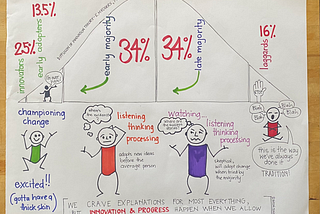 13.5%
2.5%
innovators
early adopters
early majority
34%
34%
late majority
16%
laggards
championing
change
listening
thinking
processing
adopts new ideas
before the
average person
watching...
listening
thinking
processing
skeptical,
will adopt change
when tried by
the majority
Blah
Blah
Blah
this is the way
we've always
done it
TRADITION!
excited!!
(gotta have a
thick skin
WE CRAVE EXPLANATIONS FOR MOST EVERYTHING,
BUT INNOVATION & PROGRESS HAPPEN WHEN WE ALLOW